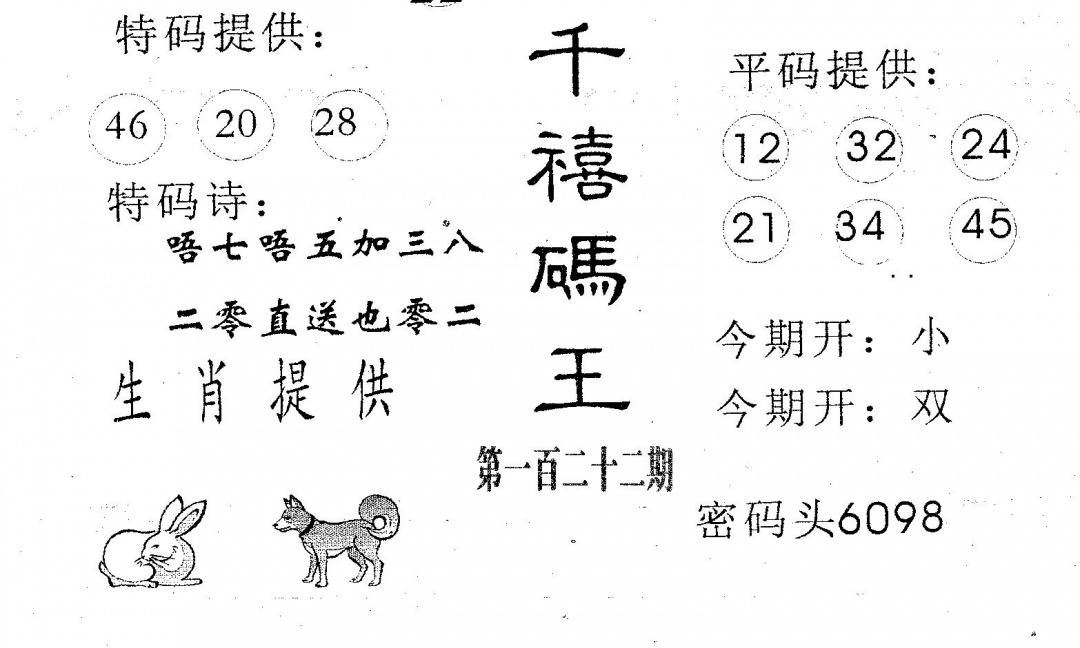 特码提供：
46 20 28
特码诗：
唔七唔五加三八
二零直送也零二
生肖提供
千禧碼王
第一百二十二期
平码提供：
12 32 24
21 34 45
今期开：小
今期开：双
密码头6098